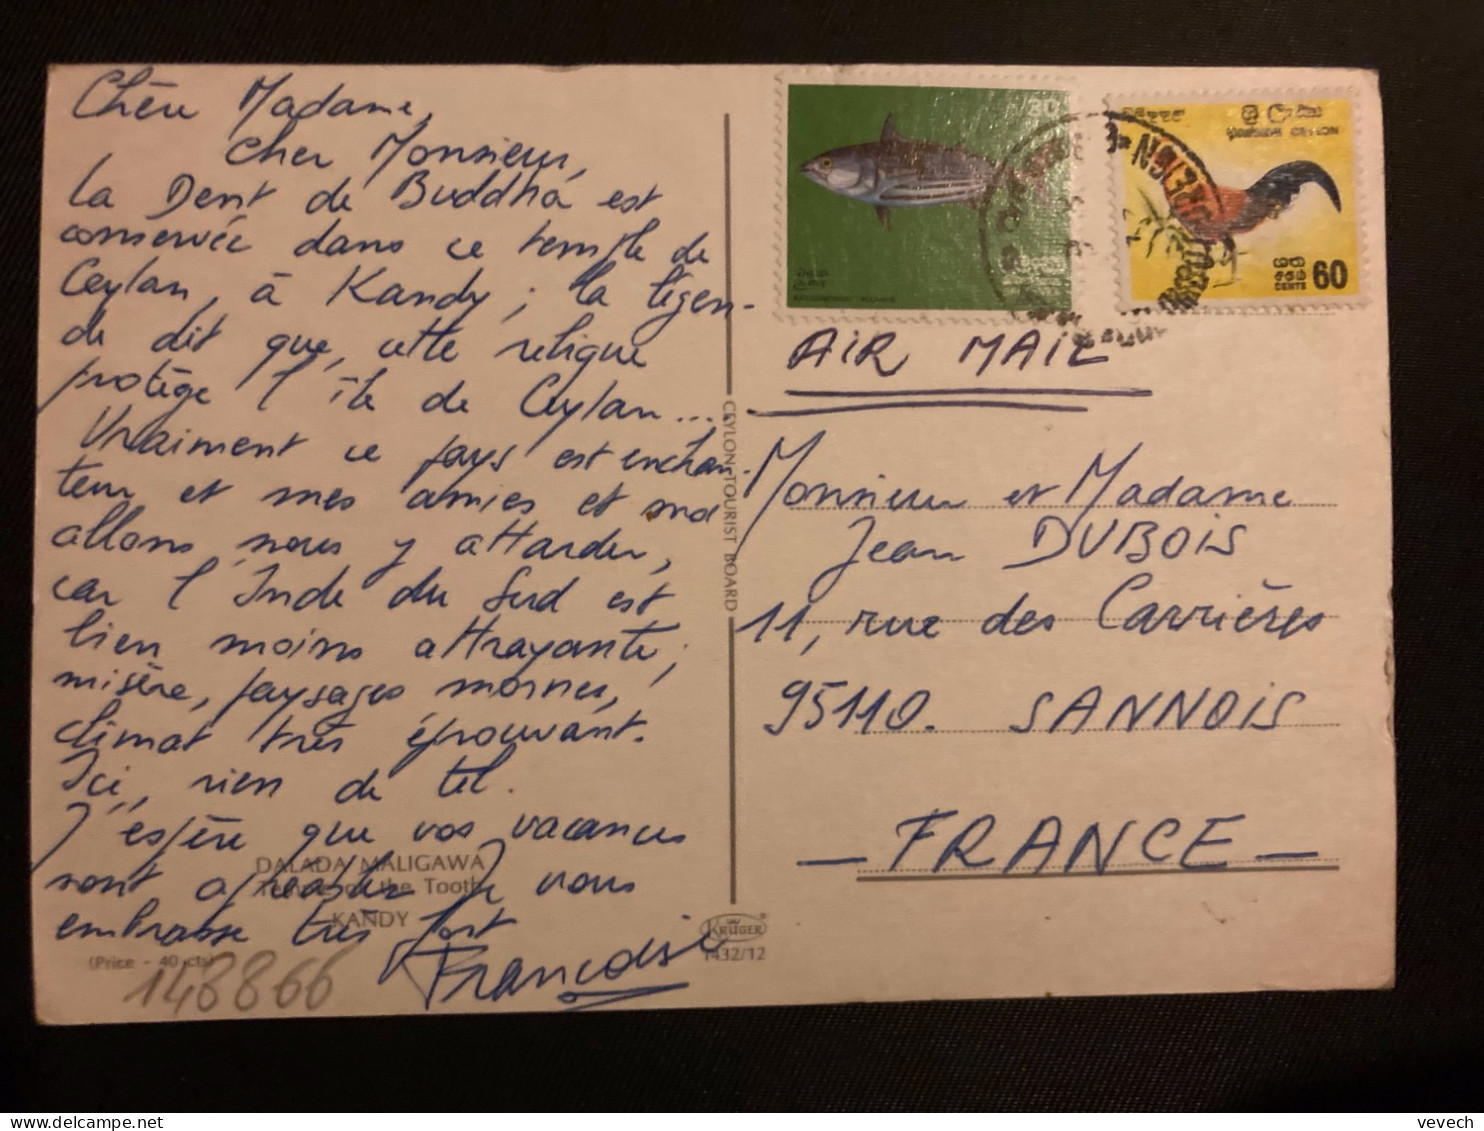 Chère Madame,
cher Monsieur,
La Dent de Buddha est
conservée dans ce temple de
Ceylan, à Kandy ; la légen-
de dit que, cette relique
protège l'île de Ceylan....
Vraiment ce pays est enchan-
teur et mes amies et moi
allons nous y attarder,
car l'Inde du Sud est
bien moins attrayante ;
misère, paysages mornes,
climat très éprouvant.
Ici, rien de tel.
J'espère que vos vacances
sont agréables. Je vous
embrasse très fort
Françoise
DALADA MALIGAWA
Temple of the Tooth
KANDY
(Price - 40 cts)
148866
CEYLON TOURIST BOARD
KRÜGER
1432/12
30
60
CENTS
AIR MAIL
Monsieur et Madame
Jean DUBOIS
11, rue des Carrières
95110. SANNOIS
— FRANCE —
vevech